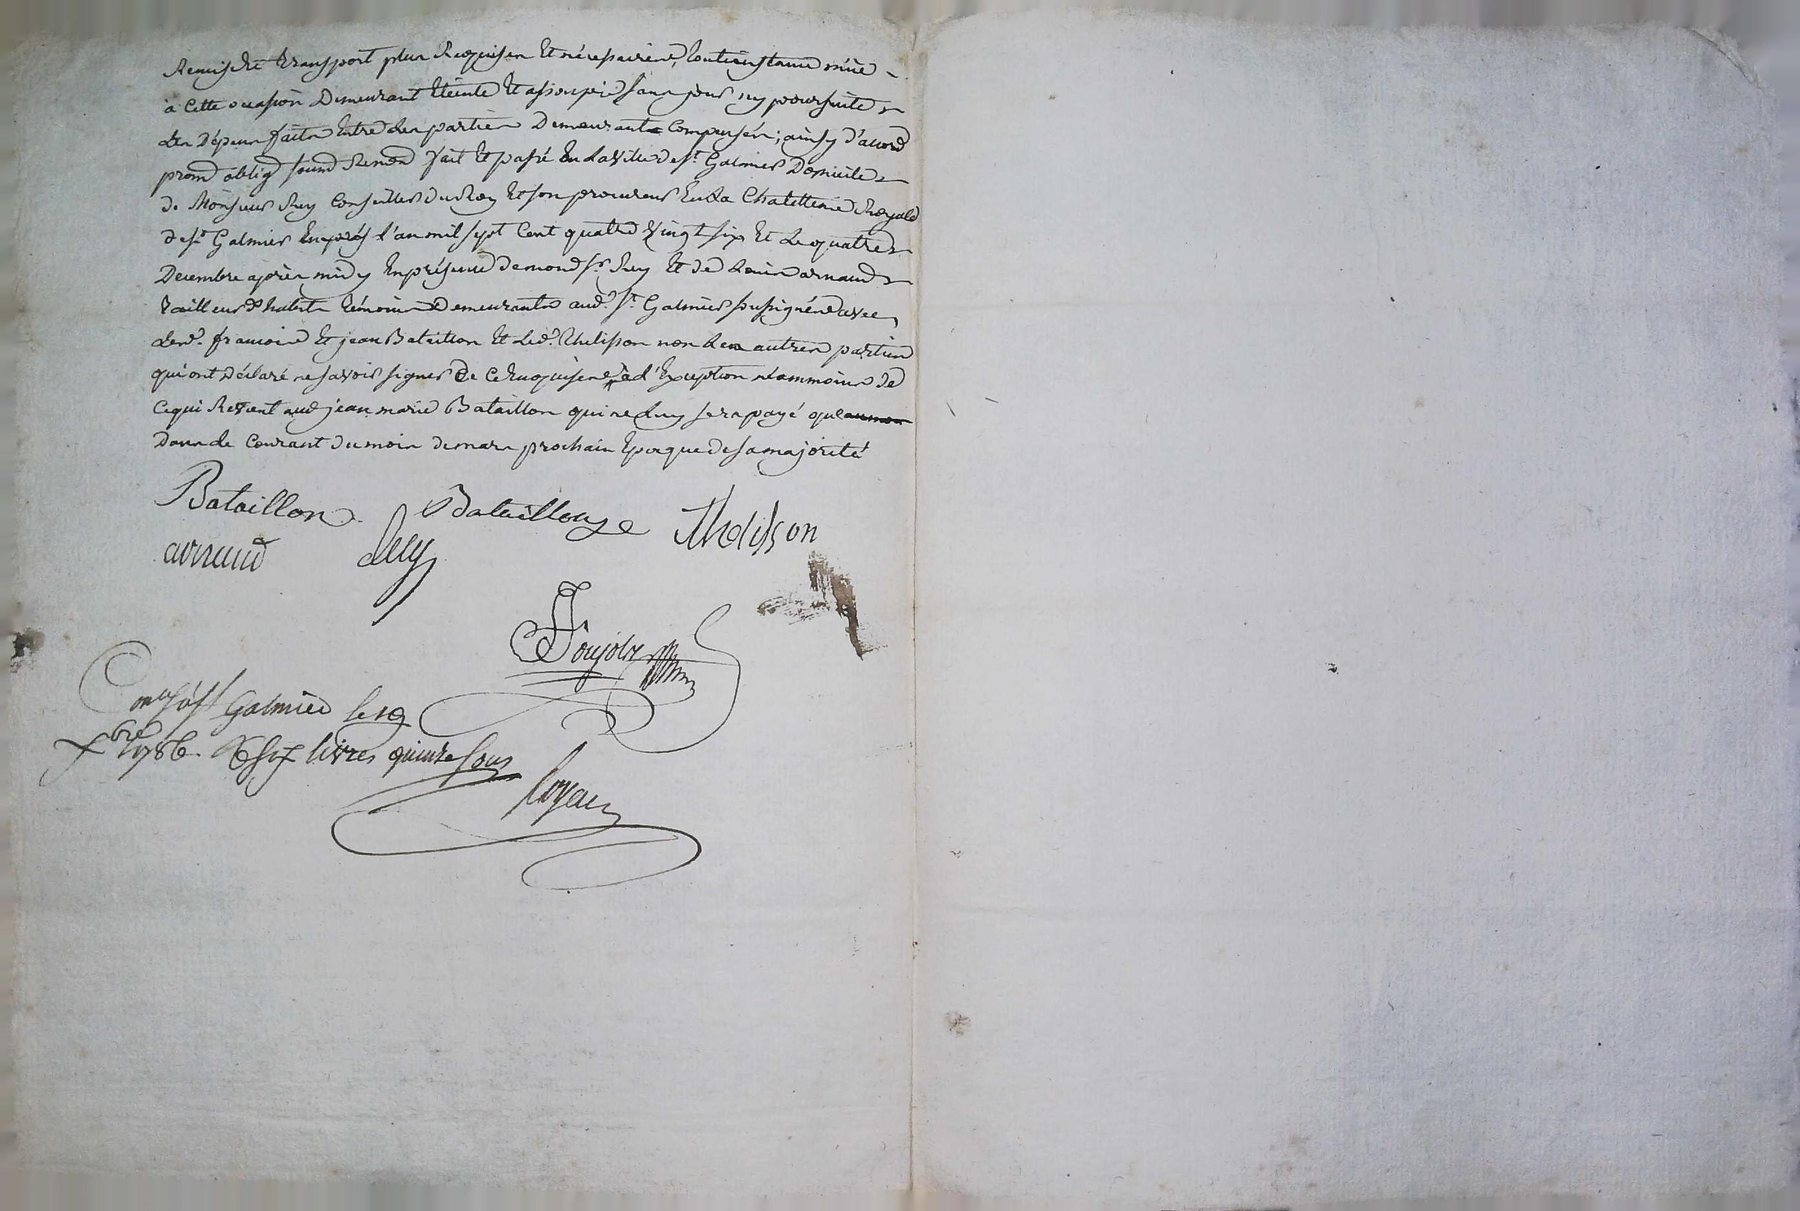 Remise et transport plus Requises Et nécessaires, toute instance müe
à Cette occasion Demeurant Eteinte Et assoupie sans jour ny poursuite
Les Dépens faits Entre Les parties Demeurants Compensés; ainsy d'accord
prom oblig soum Renon fait Et passé En La Ville de St Galmier Domicile
de Monsieur Rey Conseiller du Roy Et son procureur En La Chatellenie Royale
de St Galmier L'an mil sept Cent quatre Vingt six Et Le quatre
Decembre après midy En présence de mond Sr Rey Et de Louis arnaud
tailleur d'habits témoins Demeurants aud. St Galmier soussignés avec
Led. francois Et jean Bataillon Et Led. Thelisson non Les autres parties
qui ont Déclaré ne savoir signer de Ce Requises Et à L'Exception néammoins de
Ce qui Revient aud jean marie Bataillon qui ne Luy sera payé que
Dans Le Courant du mois de mars prochain Epoque de sa majorité
Bataillon Bataillon Thelisson
arnaud Rey
Ponjolz
Con^lé à St Galmier le 19
xbre 1786. R six livres quinze sous